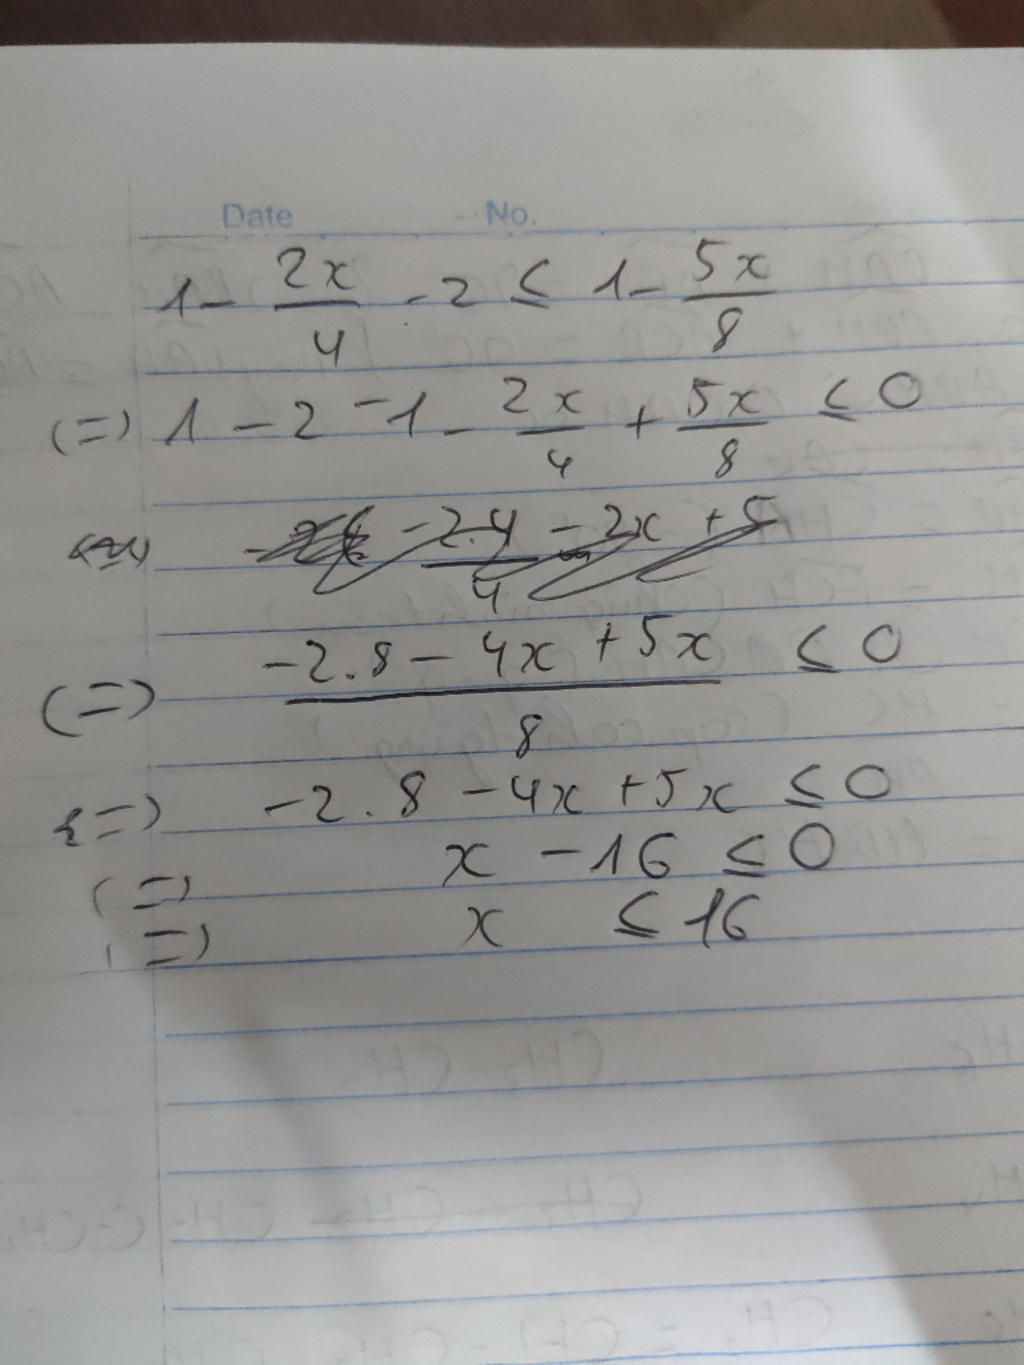 Date No.
1 - 2x/4 - 2 ≤ 1 - 5x/8
(=) 1 - 2 - 1 - 2x/4 + 5x/8 ≤ 0
(=) (-2.8 - 4x + 5x)/8 ≤ 0
(=) -2.8 - 4x + 5x ≤ 0
(=) x - 16 ≤ 0
(=) x ≤ 16